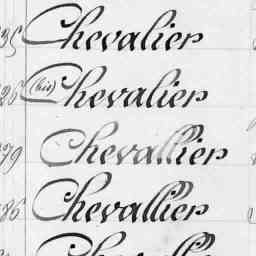 35 Chevalier
26 (bis) Chevalier
79 Chevallier
86 Chevallier